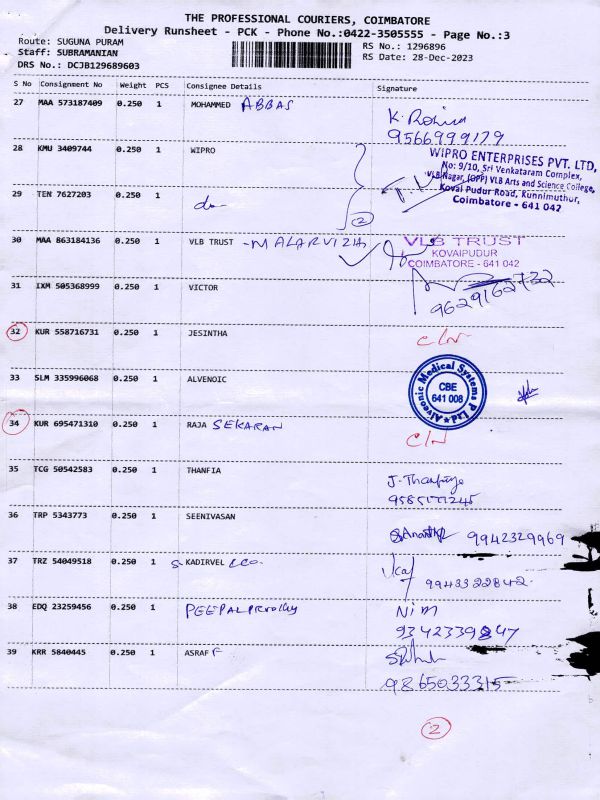 THE PROFESSIONAL COURIERS, COIMBATORE
Delivery Runsheet - PCK - Phone No.:0422-3505555 - Page No.:3
Route: SUGUNA PURAM RS No.: 1296896
Staff: SUBRAMANIAN RS Date: 28-Dec-2023
DRS No.: DCJB129689603
S No Consignment No Weight PCS Consignee Details Signature
27 MAA 573187409 0.250 1 MOHAMMED ABBAS
9566999179
28 KMU 3409744 0.250 1 WIPRO
WIPRO ENTERPRISES PVT. LTD,
No: 9/10, Sri Venkataram Complex,
VLB Nagar, (OPP) VLB Arts and Science College,
Kovai Pudur Road, Kunnimuthur,
Coimbatore - 641 042
29 TEN 7627203 0.250 1 do
2
30 MAA 863184136 0.250 1 VLB TRUST - MALARVIZHI
VLB TRUST
KOVAIPUDUR
COIMBATORE - 641 042
31 IXM 505368999 0.250 1 VICTOR
9629162732
32 KUR 558716731 0.250 1 JESINTHA C/N
33 SLM 335996068 0.250 1 ALVENOIC
Alveonic Medical Systems P Ltd
CBE
641 008
34 KUR 695471310 0.250 1 RAJA SEKARAN C/N
35 TCG 50542583 0.250 1 THANFIA
36 TRP 5343773 0.250 1 SEENIVASAN 9942329969
37 TRZ 54049518 0.250 1 S. KADIRVEL & Co.
9943322842
38 EDQ 23259456 0.250 1
39 KRR 5840445 0.250 1 ASRAF F
9865033315
2